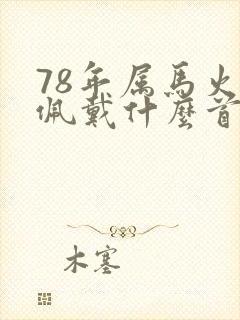 78年属馬火
佩戴什麼首
木塞